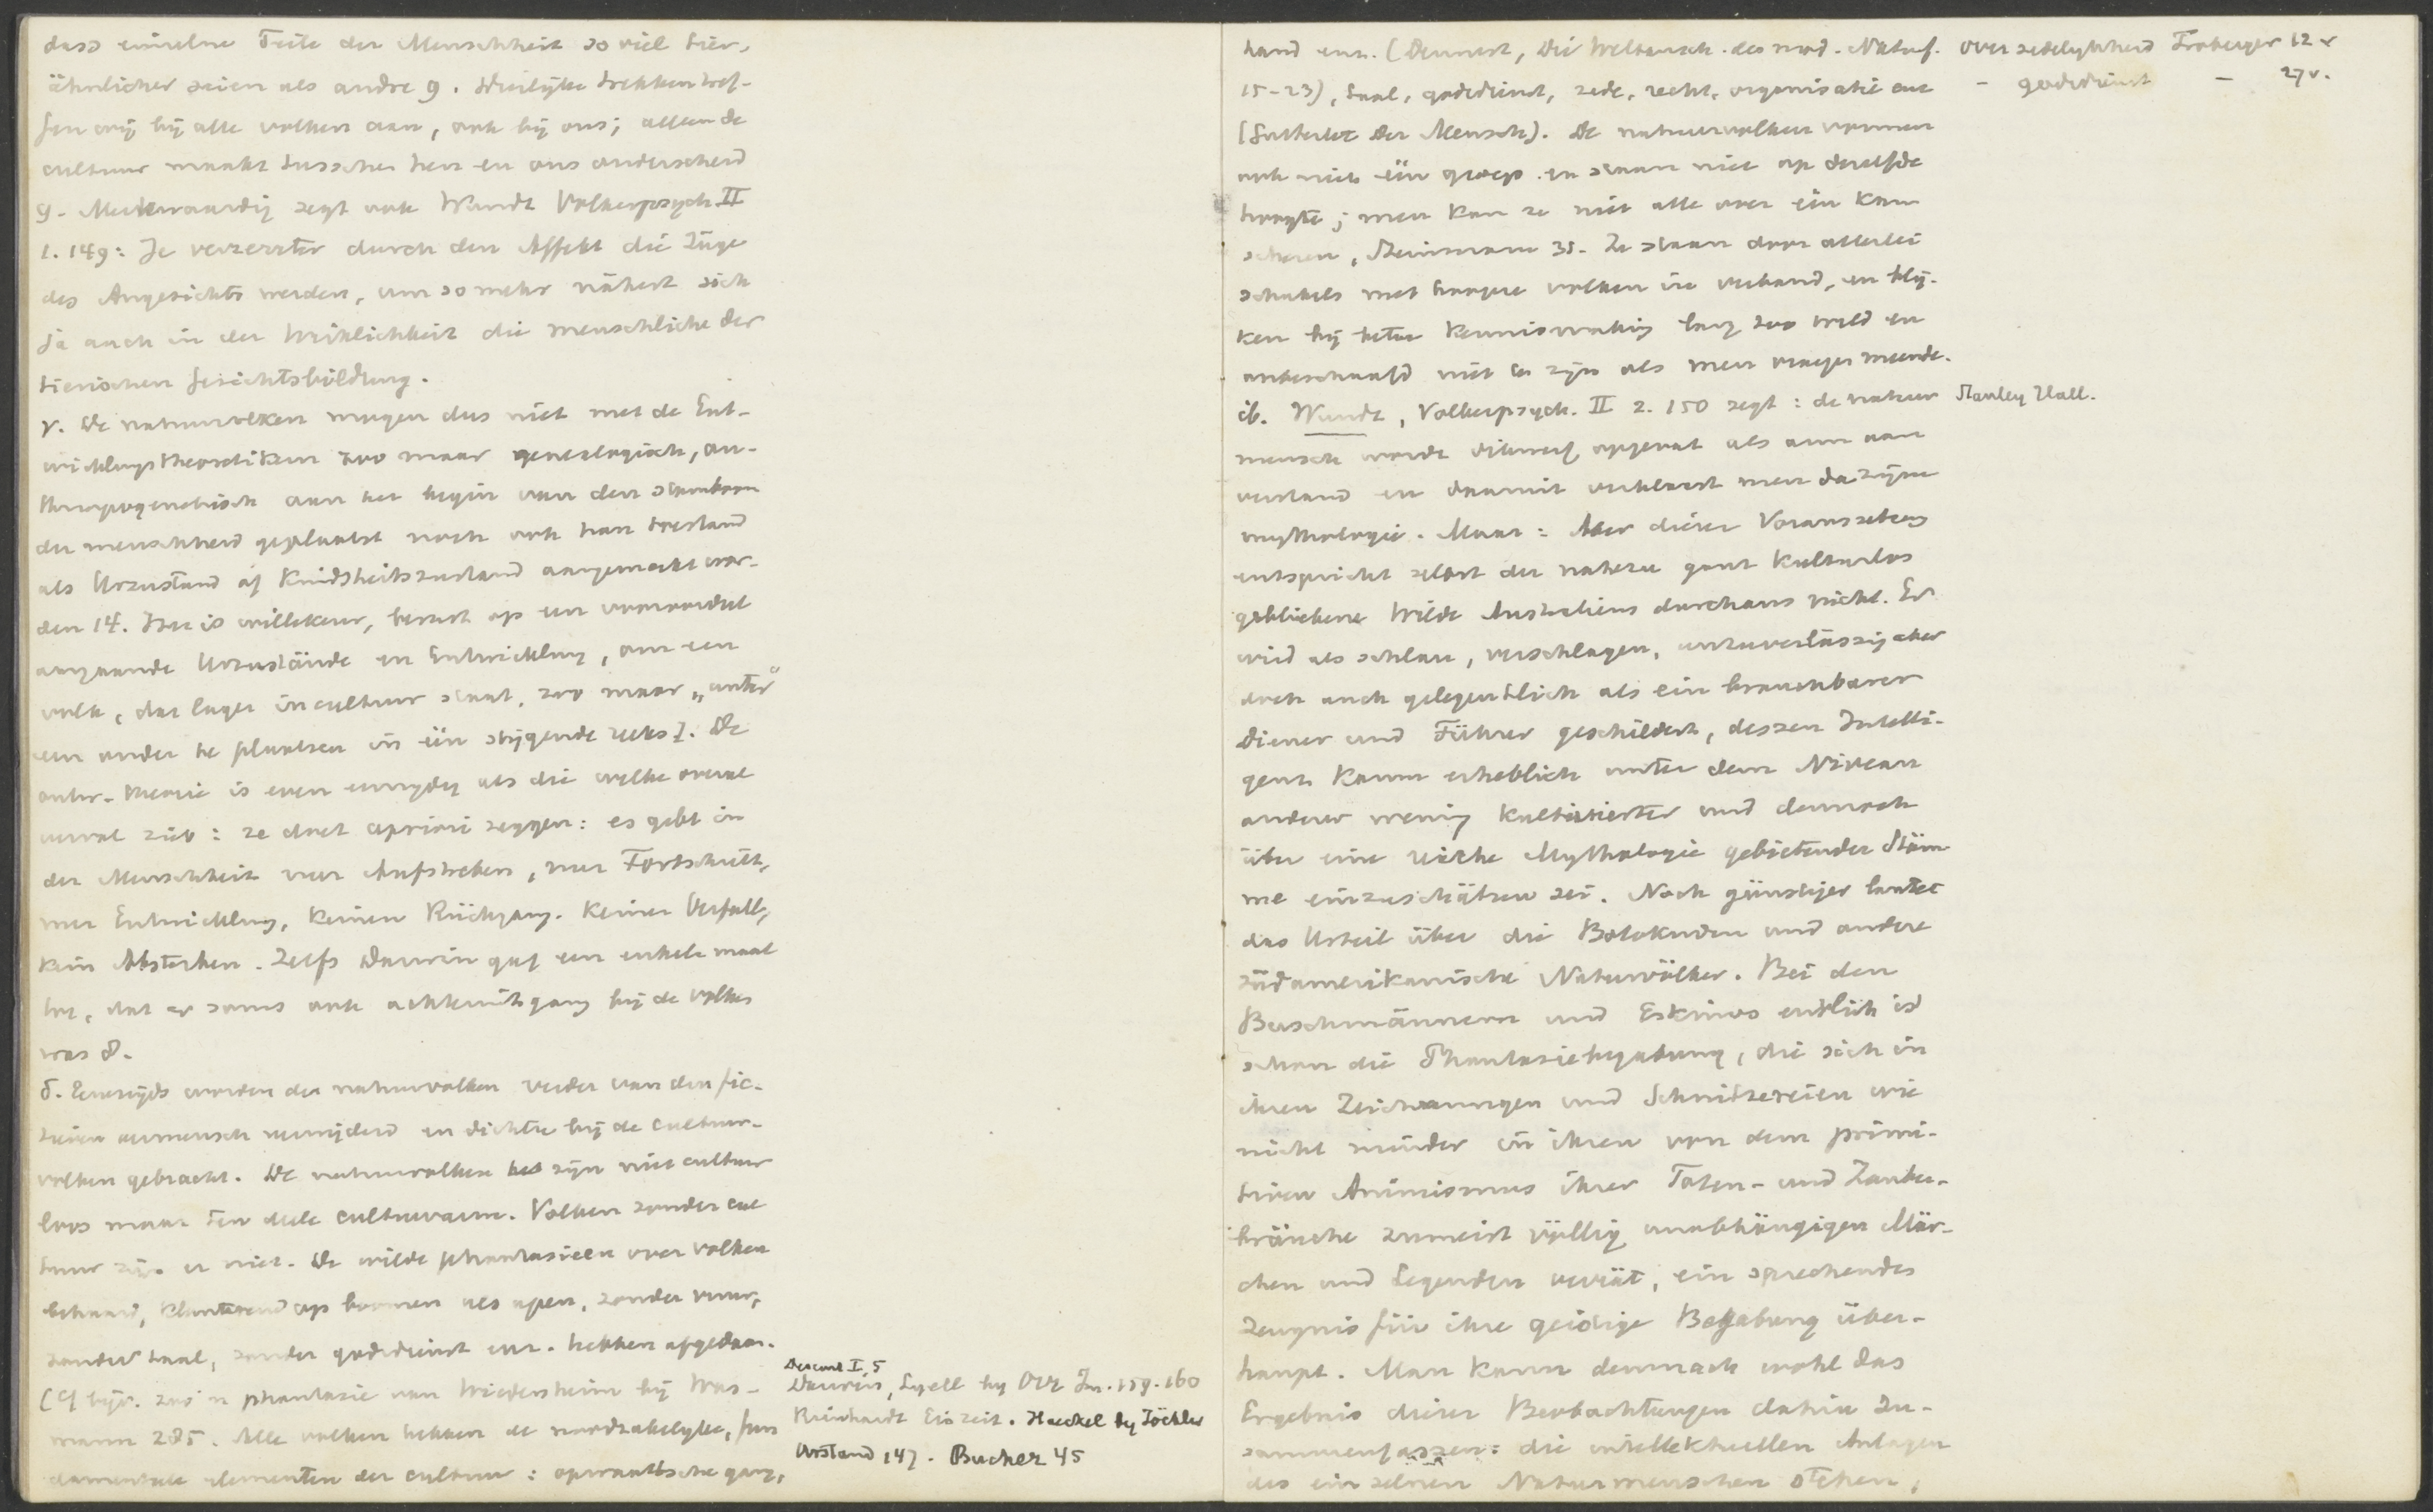 dass einzelne Teile der Menschheit so viel tier-
ähnlicher seien als andre 9. Dierlijke trekken tref-
fen wij bij alle volken aan, ook bij ons; alleen de
cultuur maakt tusschen hen en ons onderscheid
9. Merkwaardig zegt ook Wundt Völkerpsych. II
1. 149: Je verzerrter durch den Affekt die Züge
des Angesichts werden, um so mehr nähert sich
ja auch in der Wirklichkeit die menschliche der
tierischen Gesichtsbildung.
γ. De natuurvolken mogen dus niet met de Ent-
wicklungstheoretiker zoo maar genealogisch, an-
thropogenetisch aan het begin van den stamboom
der menschheid geplaatst noch ook hun toestand
als Urzustand of Kindheitszustand aangemerkt wor-
den 14. Het is willekeur, berust op een vooroordeel
aangaande Urzustände en Entwicklung, om een
volk, dat lager in cultuur staat, zoo maar „unter"
een ander te plaatsen in één stijgende reeks]. De
ontw. theorie is even eenzijdig als die welke overal
verval ziet: ze doet apriori zeggen: es gebt in
der Menschheit nur Aufstreben, nur Fortschritt,
nur Entwicklung, keinen Rückgang. Keinen Verfall,
kein Absterben. Zelfs Darwin gaf een enkele maal
toe, dat er soms ook achteruitgang bij de volken
was 8.
δ. Eenerzijds worden de natuurvolken verder van den fic-
tieven oermensch verwijderd en dichter bij de cultuur-
volken gebracht. De natuurvolken zijn niet cultuur
loos maar ten deele cultuurarm. Volken zonder cul
tuur zijn er niet. De wilde phantasieën over volken
behaard, klauterend op boomen als apen, zonder vuur,
zonder taal, zonder godsdienst enz. hebben afgedaan.
(Cf bijv. zoo'n phantasie van Wiedersheim bij Was-
mann 285. Alle volken hebben de noodzakelijke, fun
damenteele elementen der cultuur: oprechte gang,
Descent I. 5
Darwin, Lyell by Orr Im. 159. 160
Reinhardt Eiszeit. Haeckel by Töckler
Urstand 147. Bucher 45
hand enz. (Dennert, Die Weltansch. des mod. Naturf.
15-23), taal, godsdienst, zede, recht, organisatie enz
(Gutberlet Der Mensch). De natuurvolken vormen
ook niet één groep en staan niet op dezelfde
hoogte; men kan ze niet alle over één kam
scheren, Steinmann 35. Ze staan door allerlei
schakels met hoogere volken in verband, en blij-
ken bij betere kennismaking lang zoo wild en
onbeschaafd niet te zijn als men vroeger meende.
ib. Wundt, Völkerpsych. II 2. 150 zegt: de natuur
mensch wordt dikwerf opgevat als arm aan
verstand en daaruit verklaart men dan zijne
mythologie. Maar: Aber dieser Voraussetzung
entspricht selbst der nahezu ganz kulturlos
gebliebene Wilde Australiens durchaus nicht. Er
wird als schlau, verschlagen, unzuverlässig aber
doch auch gelegentlich als ein brauchbarer
Diener und Führer geschildert, dessen Intelli-
genz kaum erheblich unter dem Niveau
anderer wenig kultivierter und dennoch
über eine reiche Mythologie gebietender Stäm
me einzuschätzen sei. Noch günstiger lautet
das Urteil über die Botokuden und andere
südamerikanische Naturvölker. Bei den
Buschmännern und Eskimos endlich ist
schon die Phantasiebegabung, die sich in
ihren Zeichnungen und Schnitzereien wie
nicht minder in ihren von dem primi-
tiven Animismus ihrer Toten- und Zauber-
bräuche zumeist völlig unabhängigen Mär-
chen und Legenden verrät, ein sprechendes
Zeugnis für ihre geistige Begabung über-
haupt. Man kann demnach wohl das
Ergebnis dieser Beobachtungen dahin zu-
sammenfassen: die intellektuellen Anlagen
des einzelnen Naturmenschen stehen,
over zedelykheid Froberger 12 v
- godsdienst - 27v.
Stanley Hall.